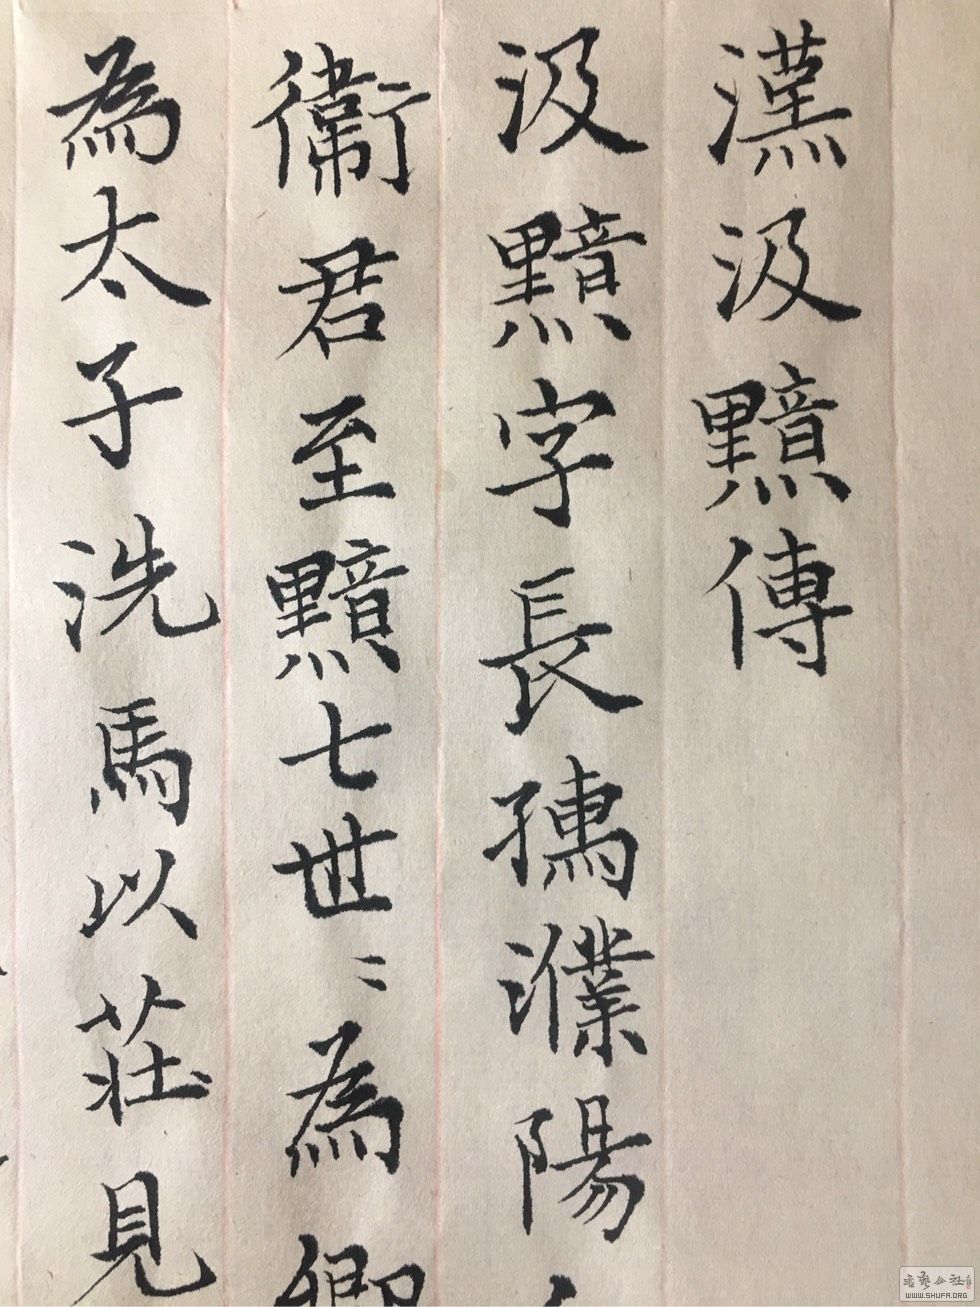 漢汲黯傳
汲黯字長孺濮陽
衛君至黯七世〻為卿
為太子洗馬以莊見
書藝公社
WWW.SHUFA.ORG